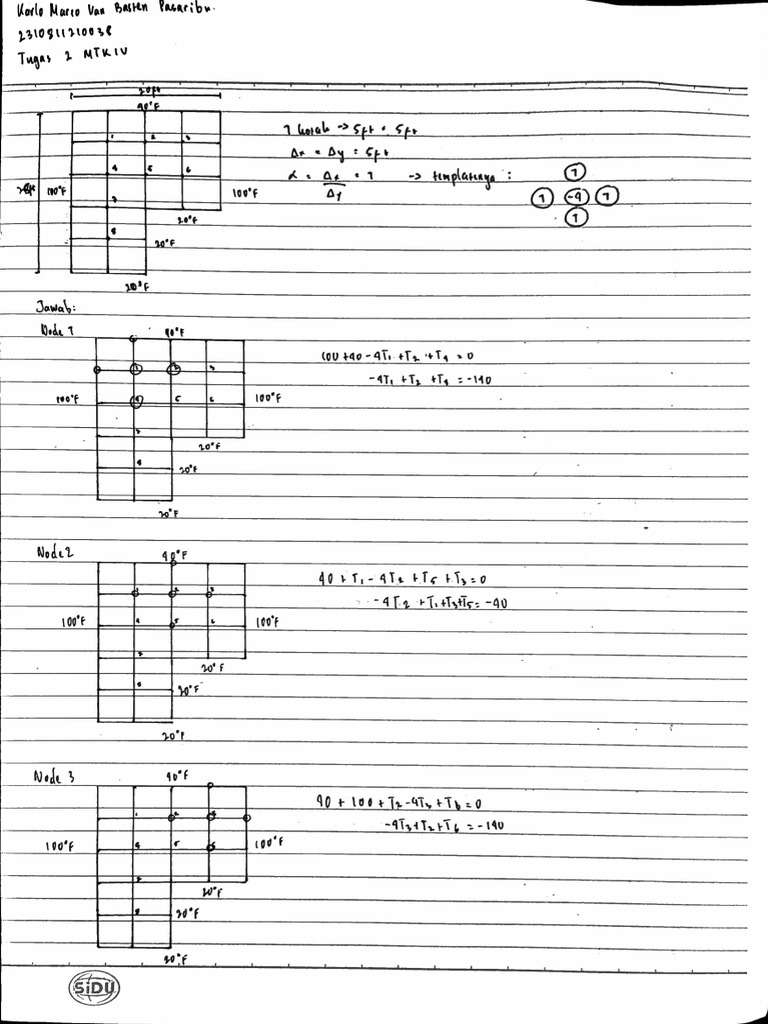 Karlo Marco Van Basten Pasaribu.
2310811210038
Tugas 2 MTK IV
20ft
40°F
1 2 3
4 5 6
7
8
100°F
100°F
20°F
20°F
20°F
1 kotak -> 5ft × 5ft
Δx = Δy = 5ft
α = Δx/Δy = 1 -> templatenya :
1
1 -4 1
1
Jawab:
Node 1
40°F
1 2 3
100°F 4 5 6 100°F
7
20°F
8 20°F
20°F
100 + 40 - 4T1 + T2 + T4 = 0
-4T1 + T2 + T4 = -140
Node 2
40°F
1 2 3
100°F 4 5 6 100°F
7
20°F
8 20°F
20°F
40 + T1 - 4T2 + T5 + T3 = 0
-4T2 + T1+T3+T5 = -40
Node 3
40°F
1 2 3
100°F 4 5 6 100°F
7
20°F
8 20°F
20°F
40 + 100 + T2 - 4T3 + T6 = 0
-4T3 + T2 + T6 = -140
SiDU